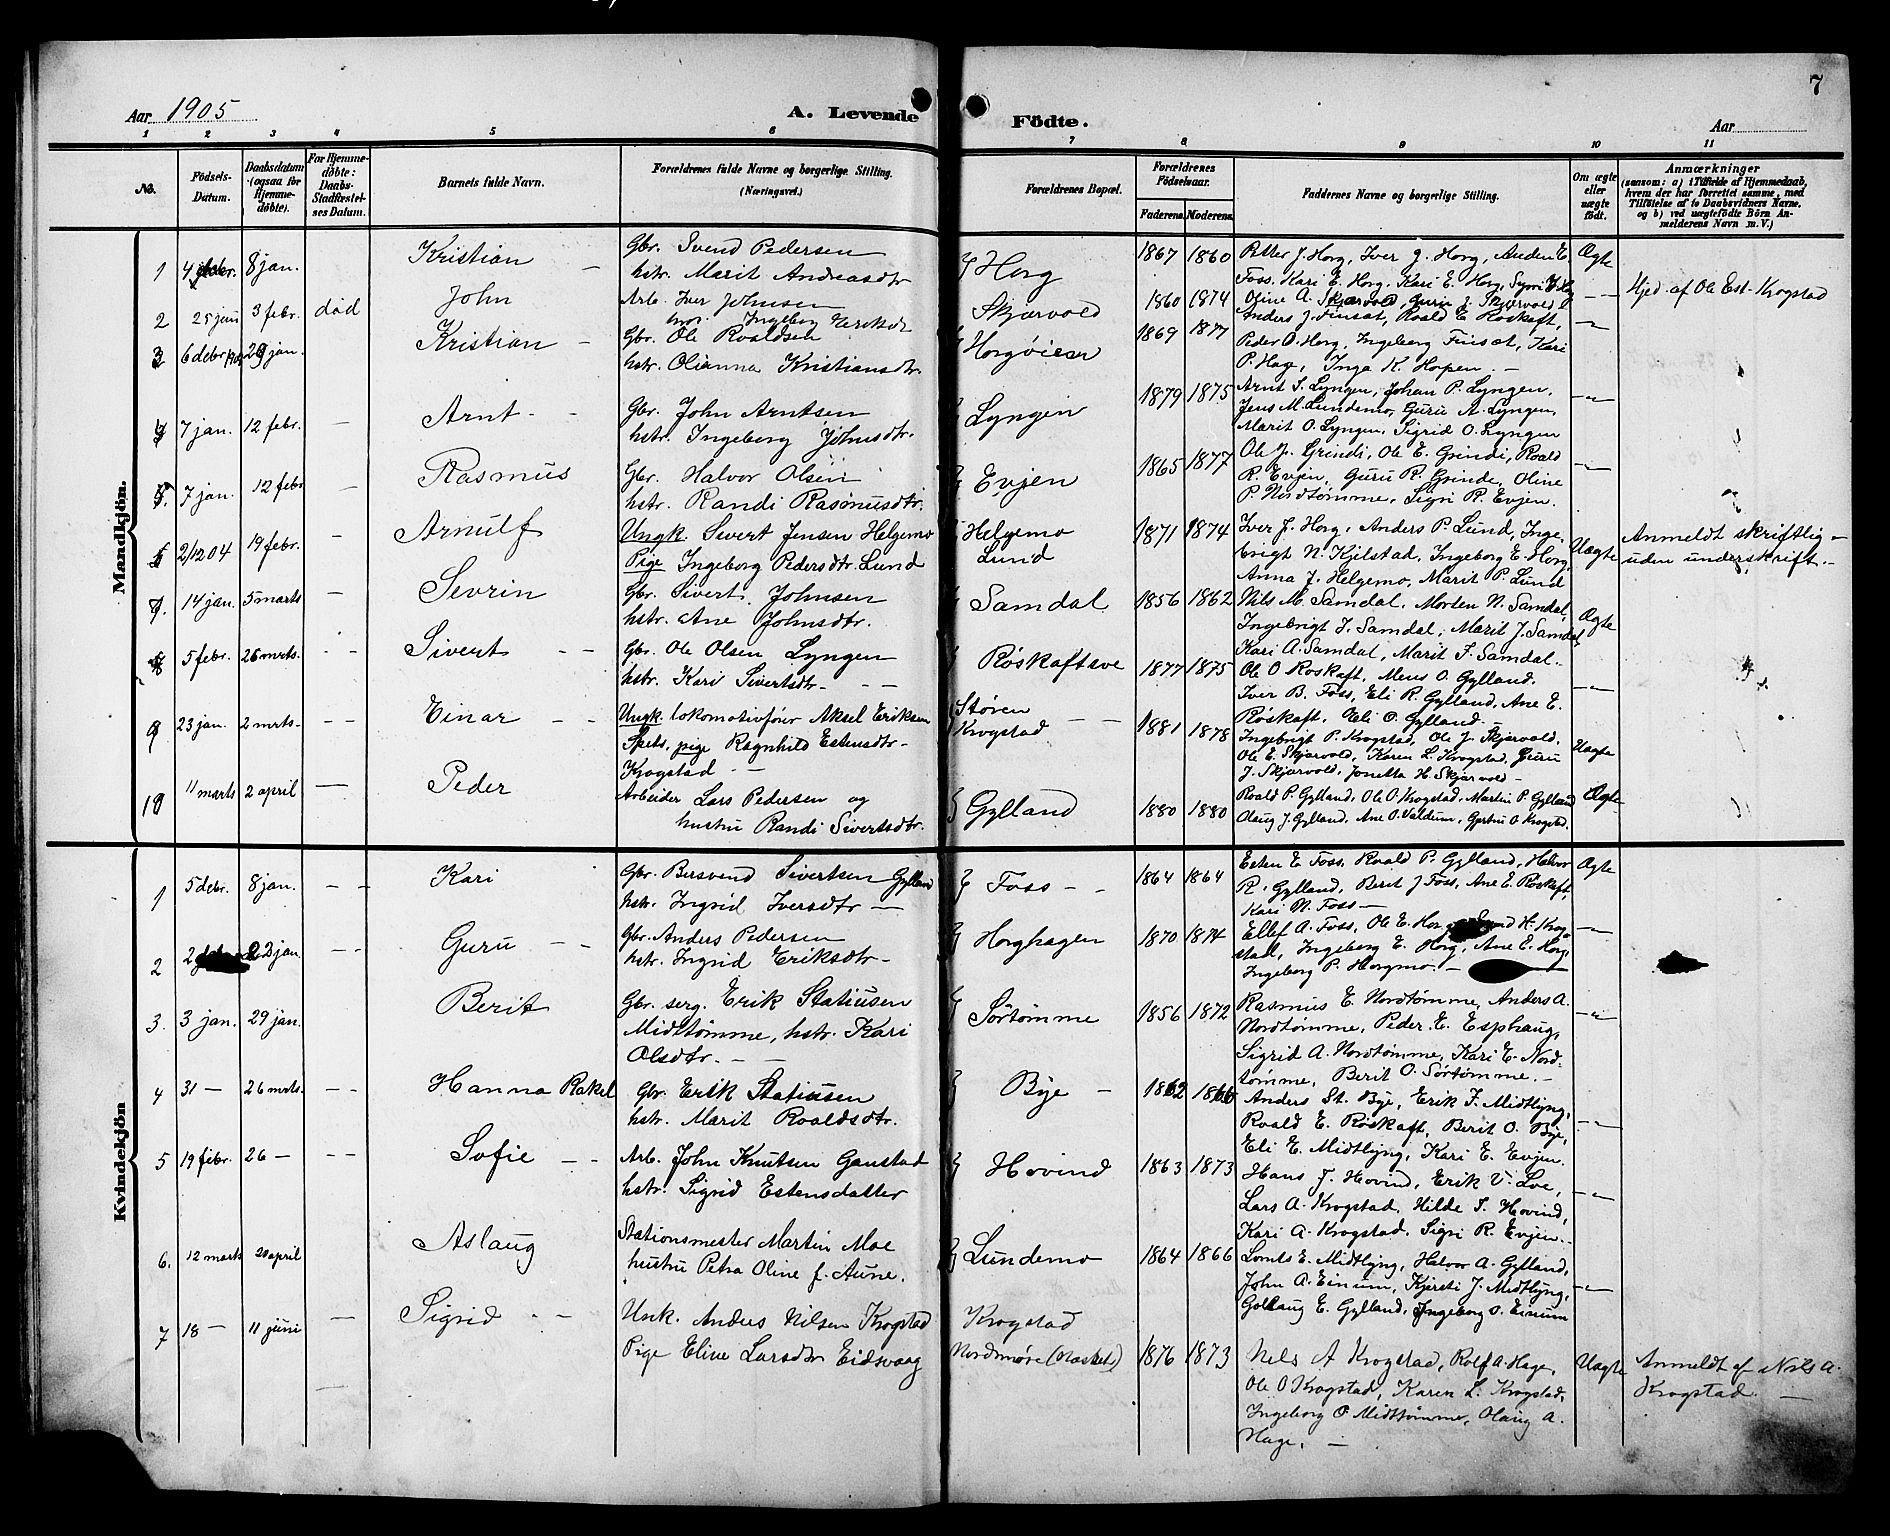 7
Aar 1905
A. Levende Födte.
Aar
1 2 3 4 5 6 7 8 9 10 11
No.
Födsels-Datum.
Daabsdatum (ogsaa for Hjemme-döbte).
For Hjemme-döbte: Daabs-Stadfæstel-ses Datum.
Barnets fulde Navn.
Forældrenes fulde Navne og borgerlige Stilling. (Næringsvei.)
Forældrenes Bopæl.
Forældrenes Födselsaar.
Faderens. Moderens.
Faddernes Navne og borgerlige Stilling.
Om ægte eller uægte födt.
Anmærkninger (saasom: a) i Tilfælde af Hjemmedaab, hvem der har forrettet samme, med Tilföielse af to Daabsvidners Navne, og b) ved uægtefödte Börn An-melderens Navn m. V.)
Mandkjön.
1 4 debr. 8 jan. Kristian —
Gbr. Svend Pedersen
hstr. Marit Andreasdtr
Horg 1867 1860
Petter J. Horg, Iver J. Horg, Anders E.
Foss. Kari E. Horg, Kari E. Horg,
Ægte
2 25 jan 3 febr. død John
Arb. Iver Johnsen
Ingeborg
Skjærvold 1860 1874
Oline A. Skjærvold, Guru J. Skjærvold
—"— Hjed. af Ole Est. Krogstad
3 6 debr. 29 jan. Kristian —
Gbr. Ole Roaldsen
hstr. Olianna Kristiansdtr.
Horgøien 1869 1877
Anders J. Finsat, Roald E. Røskaft,
Peder O. Horg, Ingeborg Finsat, Kari
P. Hage, Inga K. Hopen. —
—"—
4 7 jan. 12 febr. — Arnt - -
Gbr. John Arntsen
hstr. Ingeborg Johnsdtr.
Lyngen 1879 1875
Arnt S. Lyngen, Johan P. Lyngen,
Jens M. Lundemo, Guru A. Lyngen,
Marit O. Lyngen, Sigrid O. Lyngen
—"—
5. 7 jan. 12 febr — Rasmus
Gbr. Halvor Olsen
hstr. Randi Rasmusdtr.
Evjen 1865 1877
Ole J. Grindi, Ole E. Grindi, Roald
R. Evjen, Guru R. Grinde, Oline
P. Nordtømme, Sigri R. Evjen.
—"—
6 2/12 04 19 febr. — Arnulf
Ungk. Sivert Jensen Helgemo
Pige Ingeborg Pedersdtr. Lund
Helgemo
Lund 1871 1874
Iver J. Horg, Anders P. Lund, Inge-
brigt N. Kjelstad, Ingeborg E. Horg,
Anna J. Helgemo, Marit P. Lund
Uægte
Anmeldt skriftlig —
uden underskrift. —
7. 14 jan. 5 marts — Sevrin
Gbr. Sivert Johnsen
hstr. Ane Johnsdtr.
Samdal 1856 1862
Nils M. Samdal, Morten N. Samdal,
Ingebrigt J. Samdal, Marit J. Samdal
Kari A. Samdal, Marit F. Samdal.
Ægte
8 5 febr. 26 mrts. - - Sivert - -
Gbr. Ole Olsen Lyngen
hstr. Kari Sivertsdtr - — —
Røskaftsve 1877 1875
Ole O Roskaft, Mens O. Gylland.
Iver B. Foss, Eli R. Gylland, Ane E.
Røskaft, Eli O. Gylland. —
—"—
9 23 jan. 2 mrts - - - Einar - -
Ungk. lokomotivfører Aksel Eriksen
pige Ragnhild Estensdtr -
Krogstad —
Støren - -
Krogstad 1881 1878
Ingebrigt P. Krogstad, Ole J. Skjærvold,
Ole E. Skjærvold, Karen L. Krogstad, Guru
J. Skjærvold, Jonetta H. Skjærvold -
Uægte
10 11 marts 2 april — Peder
Arbeider Lars Pedersen og
hustru Randi Sivertsdtr.
Gylland 1880 1880
Roald P. Gylland, Ole O. Krogstad, Martin P. Gylland
Olaug J. Gylland, Ane O. Valdum, Gjertru O. Krogstad.
Ægte
Kvindekjön
1 5 debr. 8 jan. - - Kari
Gbr. Bersvend Sivertsen Gylland
hstr. Ingrid Iversdtr —
Foss - - 1864 1864
Esten E. Foss, Roald P. Gylland, Halvor
R. Gylland, Berit J Foss, Ane E. Røskaft,
Kari N. Foss —
Ægte
2 2 22 jan. - - Guru - -
Gbr. Anders Pedersen
hstr. Ingrid Eriksdtr -
Horghagen 1870 1874
Ellef A. Foss, Ole E. Horg, H. Krog-
stad, Ingeborg E. Horg, Ane E. Horg,
Ingeborg P. Horgmo. —
—"—
3. 3 jan. 29 jan. Berit
Gbr. serg. Erik Statiusen
Midttømme, hstr. Kari
Olsdtr. — —
Sørtømme 1856 1872
Rasmus E. Nordtømme, Anders A.
Nordtømme, Peder E. Esphaug,
Sigrid A. Nordtømme, Kari E. Nord-
tømme, Berit O. Sørtømme. —
—"—
4 31 — 26 mrts. - - Hanna Rakel
Gbr. Erik Statiusen
hstr. Marit Roaldsdtr.
Bye - 1862 1866
Anders St. Bye, Erik F. Midtlyng,
Roald E. Røskaft, Berit O. Bye,
Eli E. Midtlyng, Kari E. Evjen.
—"—
5 19 febr. 26 — - - Sofie - -
Arb. John Knutsen Ganstad
hstr. Sigrid Estensdatter
Hovind 1863 1873
Hans J. Hovind, Erik V. Loe,
Lars A. Krogstad, Hilde S. Hovind,
Kari A. Krogstad, Sigri R. Evjen.
—"—
6. 12 marts 20 april Aslaug
Stationsmester Martin Moe
hustru Petra Oline f. Aune.
Lundemo 1864 1866
Lornts E. Midtlyng, Halvor A. Gylland,
John A. Einum, Kjersti J. Midtlyng,
Gollaug E. Gylland, Ingeborg O. Einum
—"—
7 18 — 11 juni — Sigrid - -
Unk. Anders Nilsen Krogstad
Pige Eline Larsdtr Eidsvaag
Krogstad
Nordmøre (Nasset) 1876 1873
Nels A Krogstad, Rolf A. Hage,
Ole O Krogstad, Karen L. Krogstad,
Ingeborg O Midttømme, Olaug A.
Hage. —
Uægte
Anmeldt af Nils A.
Krogstad. —